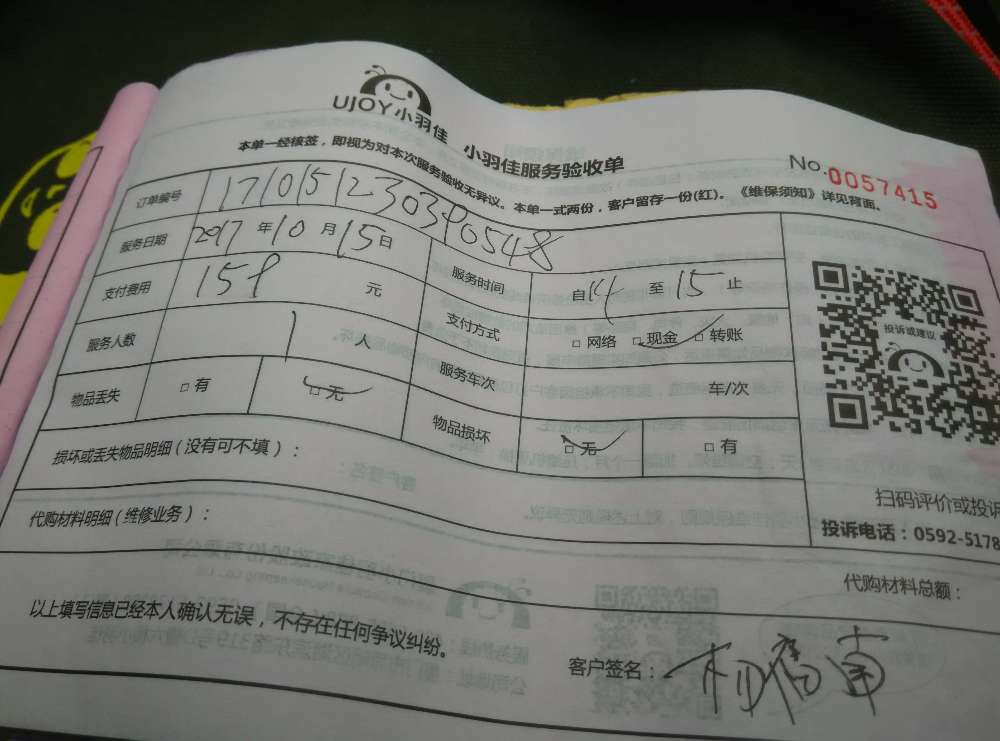 UJOY小羽佳 小羽佳服务验收单
No.0057415
本单一经核签，即视为对本次服务验收无异议。本单一式两份，客户留存一份(红)。《维保须知》详见背面。
订单编号 171051230390548
服务日期 2017 年 10 月 15 日 服务时间 自 14 至 15 止
支付费用 159 元 支付方式 □ 网络 □ 现金 □ 转账
服务人数 1 人 服务车次 车/次
物品丢失 □ 有 □ 无 物品损坏 □ 无 □ 有
投诉或建议
损坏或丢失物品明细（没有可不填）：
扫码评价或投诉
代购材料明细（维修业务）：
投诉电话：0592-5178
代购材料总额：
以上填写信息已经本人确认无误，不存在任何争议纠纷。
客户签名：